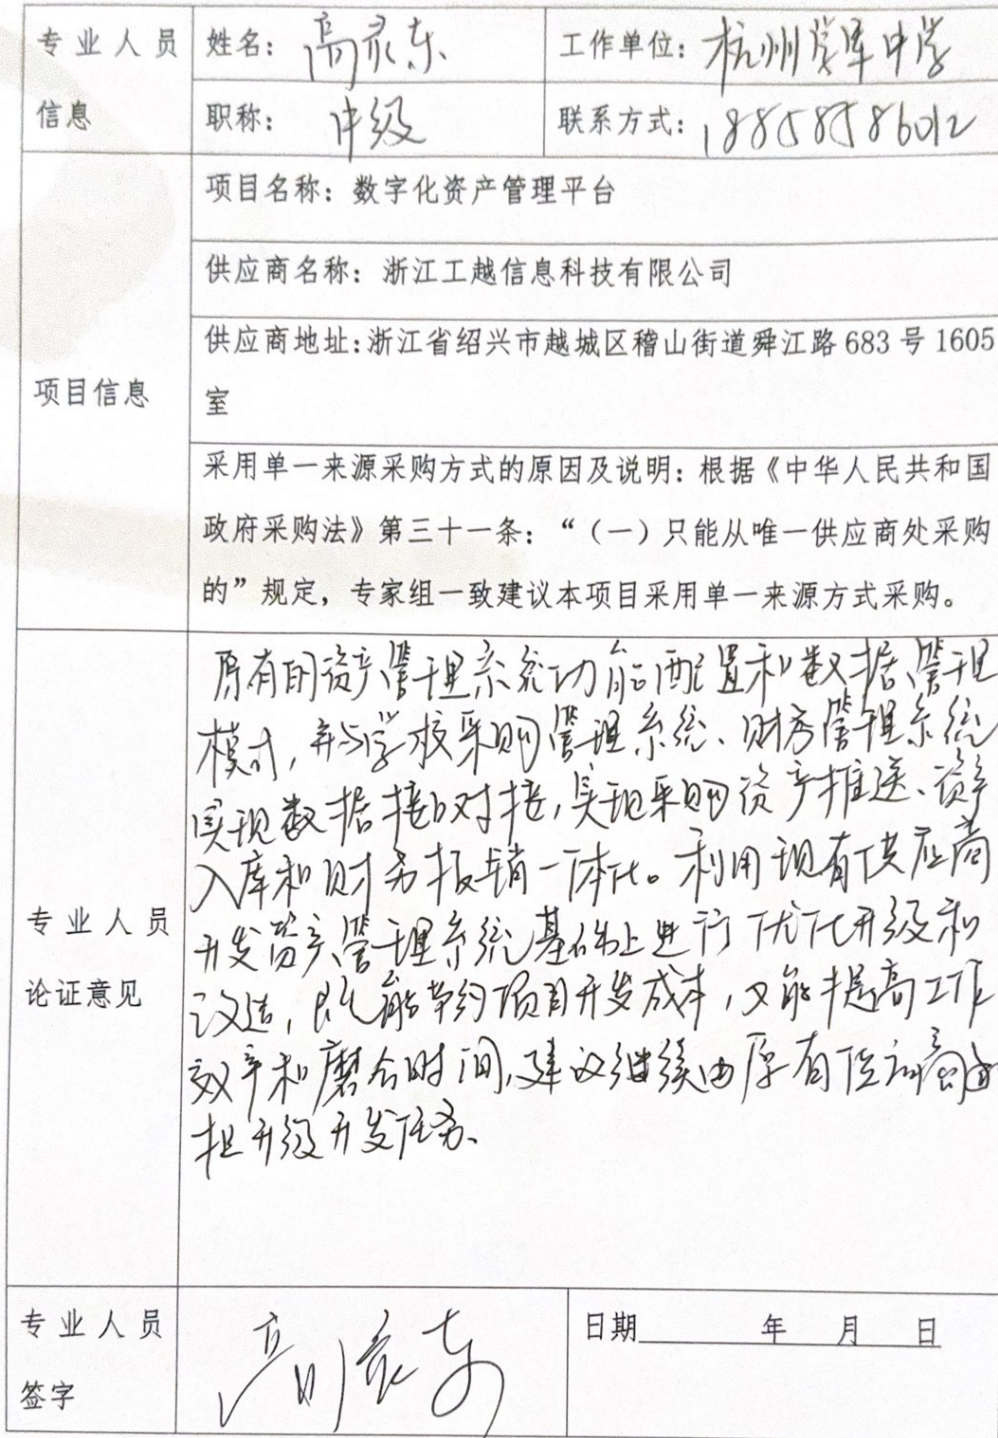 专业人员
信息
姓名：高京东
工作单位：杭州学军中学
职称：中级
联系方式：18858586012
项目信息
项目名称：数字化资产管理平台
供应商名称：浙江工越信息科技有限公司
供应商地址:浙江省绍兴市越城区稽山街道舜江路 683 号 1605
室
采用单一来源采购方式的原因及说明：根据《中华人民共和国
政府采购法》第三十一条：“（一）只能从唯一供应商处采购
的”规定，专家组一致建议本项目采用单一来源方式采购。
专业人员
论证意见
原有的资产管理系统功能配置和数据管理
模式，并与学校采购管理系统、财务管理系统
实现数据接口对接，实现采购资产推送、资产
入库和财务报销一体化。利用现有供应商
开发资产管理系统基础上进行优化升级和
改造，既能节约项目开发成本，又能提高工作
效率和磨合时间，建议继续由原有供应商承
担升级开发任务、
专业人员
签字
日期 年 月 日